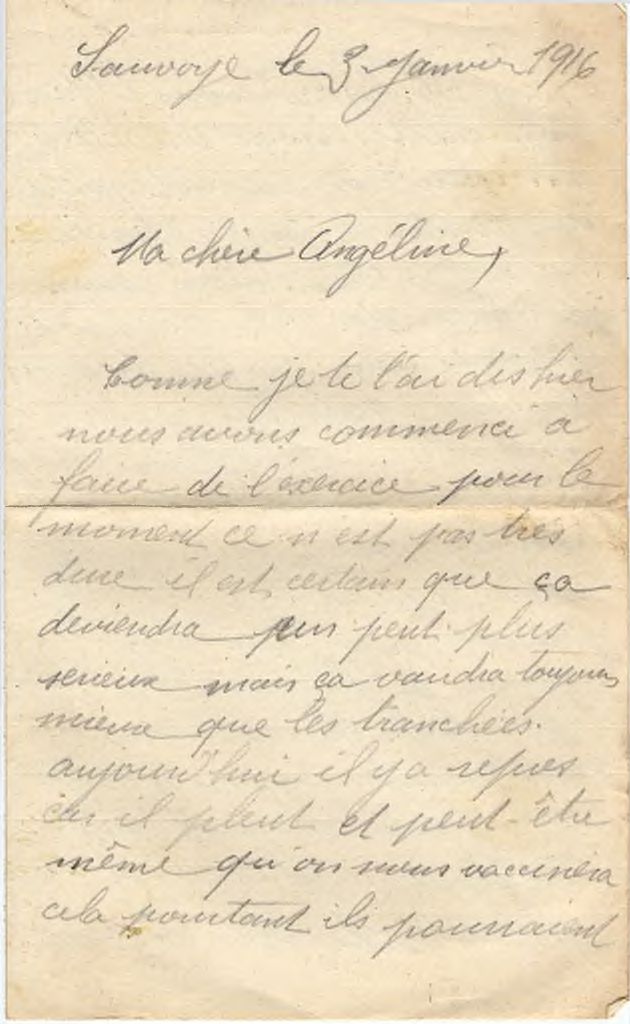 Sauvoye le 3 Janvier 1916
Ma chère Angéline,
Comme je te l'ai dis hier
nous avons commencé a
faire de l'exercice pour le
moment ce n'est pas très
dure il est certain que ça
deviendra un peut plus
serieux mais ça vaudra toujours
mieux que les tranchées.
aujourd'hui il y a repos
car il pleut et peut-être
même qu'on nous vaccinera
cela pourtant ils pourraient